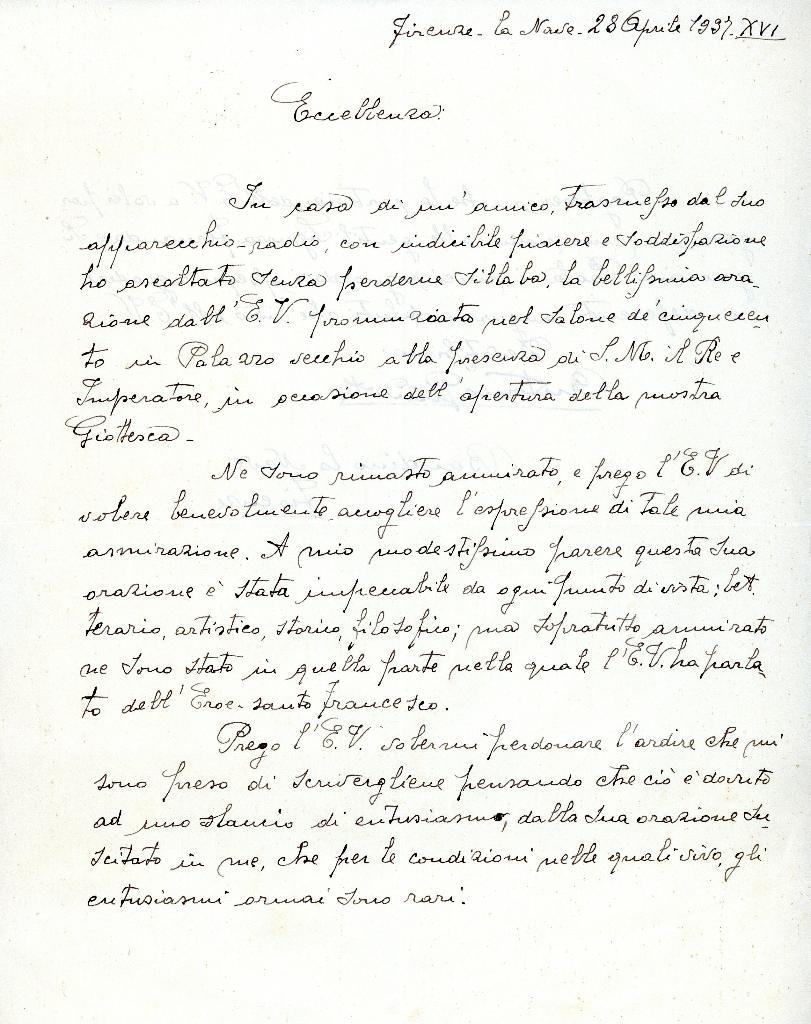 Firenze - la Nave - 28 Aprile 1937. XVI
Eccellenza:
In casa di un'amico, trasmesso dal suo
apparecchio-radio, con indicibile piacere e soddisfazione
ho ascoltato senza perderne sillaba, la bellissima ora-
zione dall'E.V. pronunziata nel salone de' cinquecen-
to in Palazzo vecchio alla presenza di S. M. il Re e
Imperatore, in occasione dell'apertura della mostra
Giottesca -
Ne sono rimasto ammirato, e prego l'E.V di
volere benevolmente accogliere l'espressione di tale mia
ammirazione. A mio modestissimo parere questa sua
orazione è stata impeccabile da ogni punto di vista; let-
terario, artistico, storico, filosofico; ma sopratutto ammirato
ne sono stato in quella parte nella quale l'E.V. ha parla-
to dell'Eroe - santo Francesco.
Prego l'E.V. volermi perdonare l'ardire che mi
sono preso di scrivergliene pensando che ciò è dovuto
ad uno slancio di entusiasmo, dalla sua orazione su-
scitato in me, che per le condizioni nelle quali vivo, gli
entusiasmi ormai sono rari.